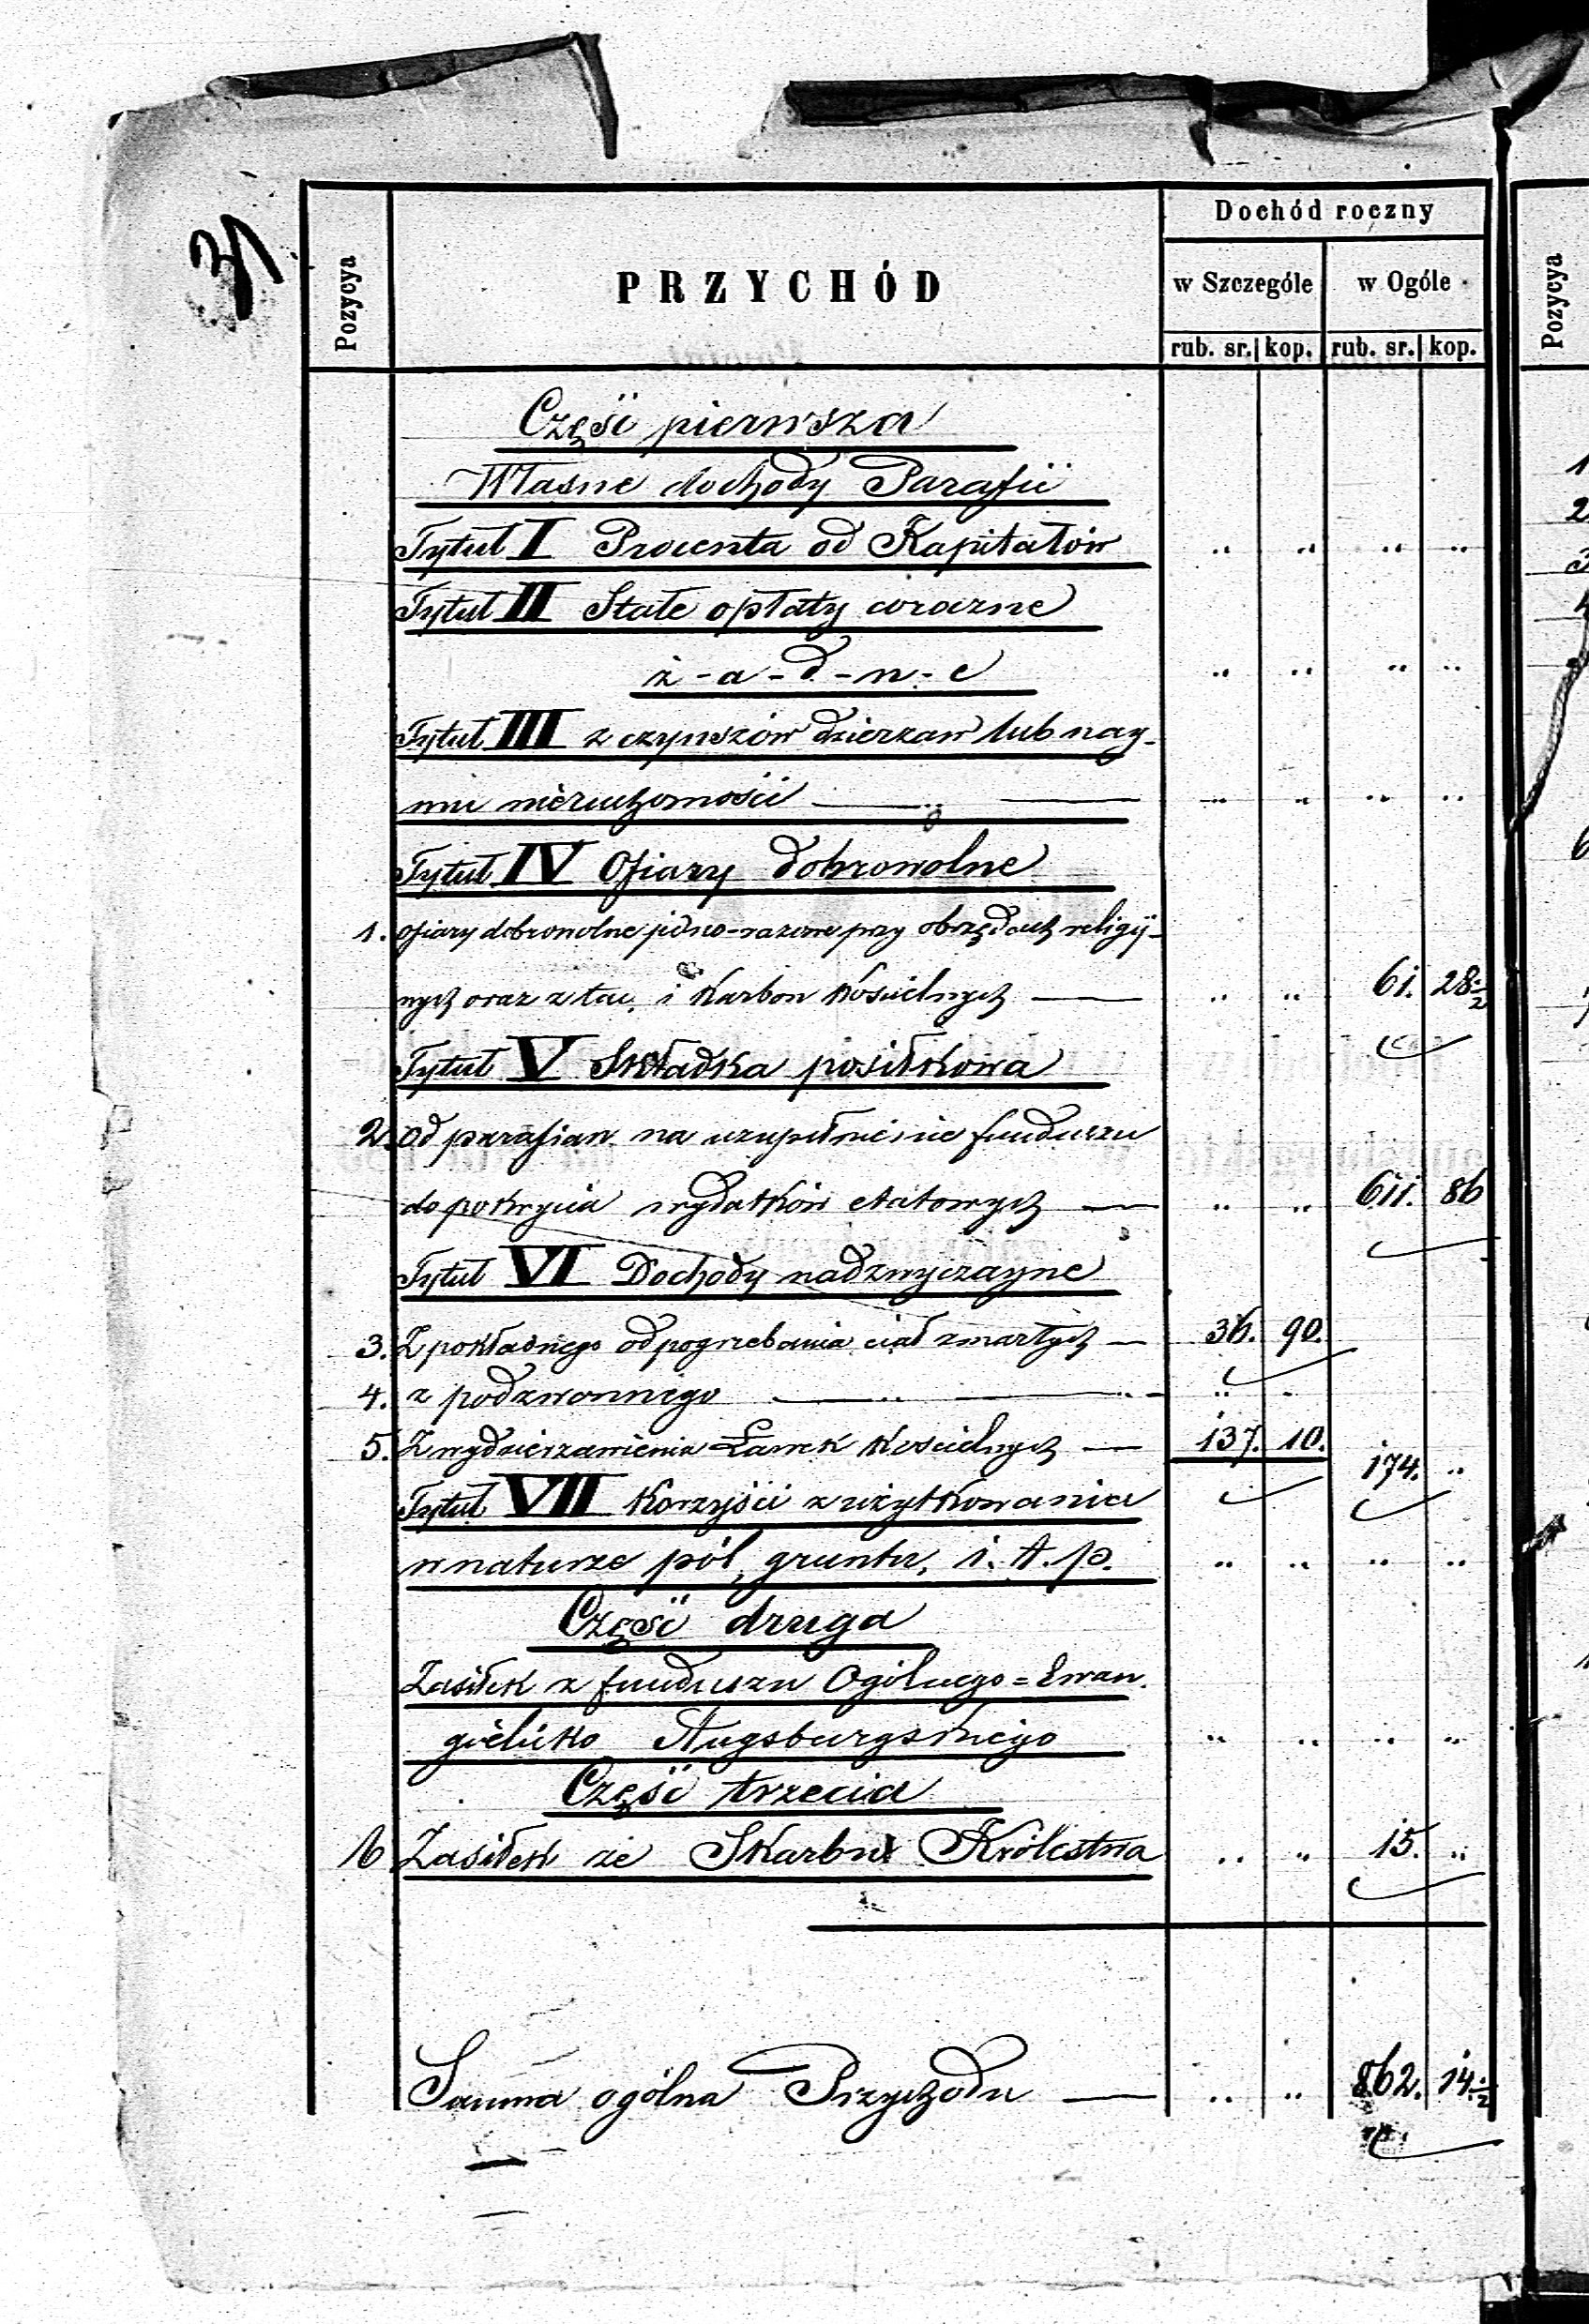 31
Pozycya
PRZYCHÓD
Dochód roczny
w Szczególe
w Ogóle
rub. sr. kop. rub. sr. kop.
Pozycya
Część pierwsza
Własne dochody Parafii
Tytuł I Procenta od Kapitałów " " " "
Tytuł II Stałe opłaty coroczne
ż-a-d-n-e " " " "
Tytuł III z czynszów dzierżaw lub nay-
mu nieruchomości — " — " " " "
Tytuł IV Ofiary dobrowolne
1. Ofiary dobrowolne jedno-razowe przy obrzędach religij-
nych oraz z tac, i Karbon Kościelnych — " " 61. 28 1/2
Tytuł V Składka posiłkowa
2. Od parafian na uzupełnienie funduszu
do pokrycia wydatków etatowych — " " 611. 86
Tytuł VI Dochody nadzwyczayne
3. Z pokładnego od pogrzebania ciał zmarłych — 36. 90.
4. z podzwonnego — " — " " "
5. Z wydzierzawienia Ławek Kościelnych — 137. 10. 174. "
Tytuł VII Korzyści z użytkowania
w naturze pól, gruntu, i. t. p. " " " "
Część druga
Zasiłek z funduszu Ogólnego=Ewan.
gielicko Augsburgskiego " " " "
Część trzecia
6 Zasiłek ze Skarbu Królestwa " " 15. "
Summa ogólna Przychodu — " " 862. 14 1/2